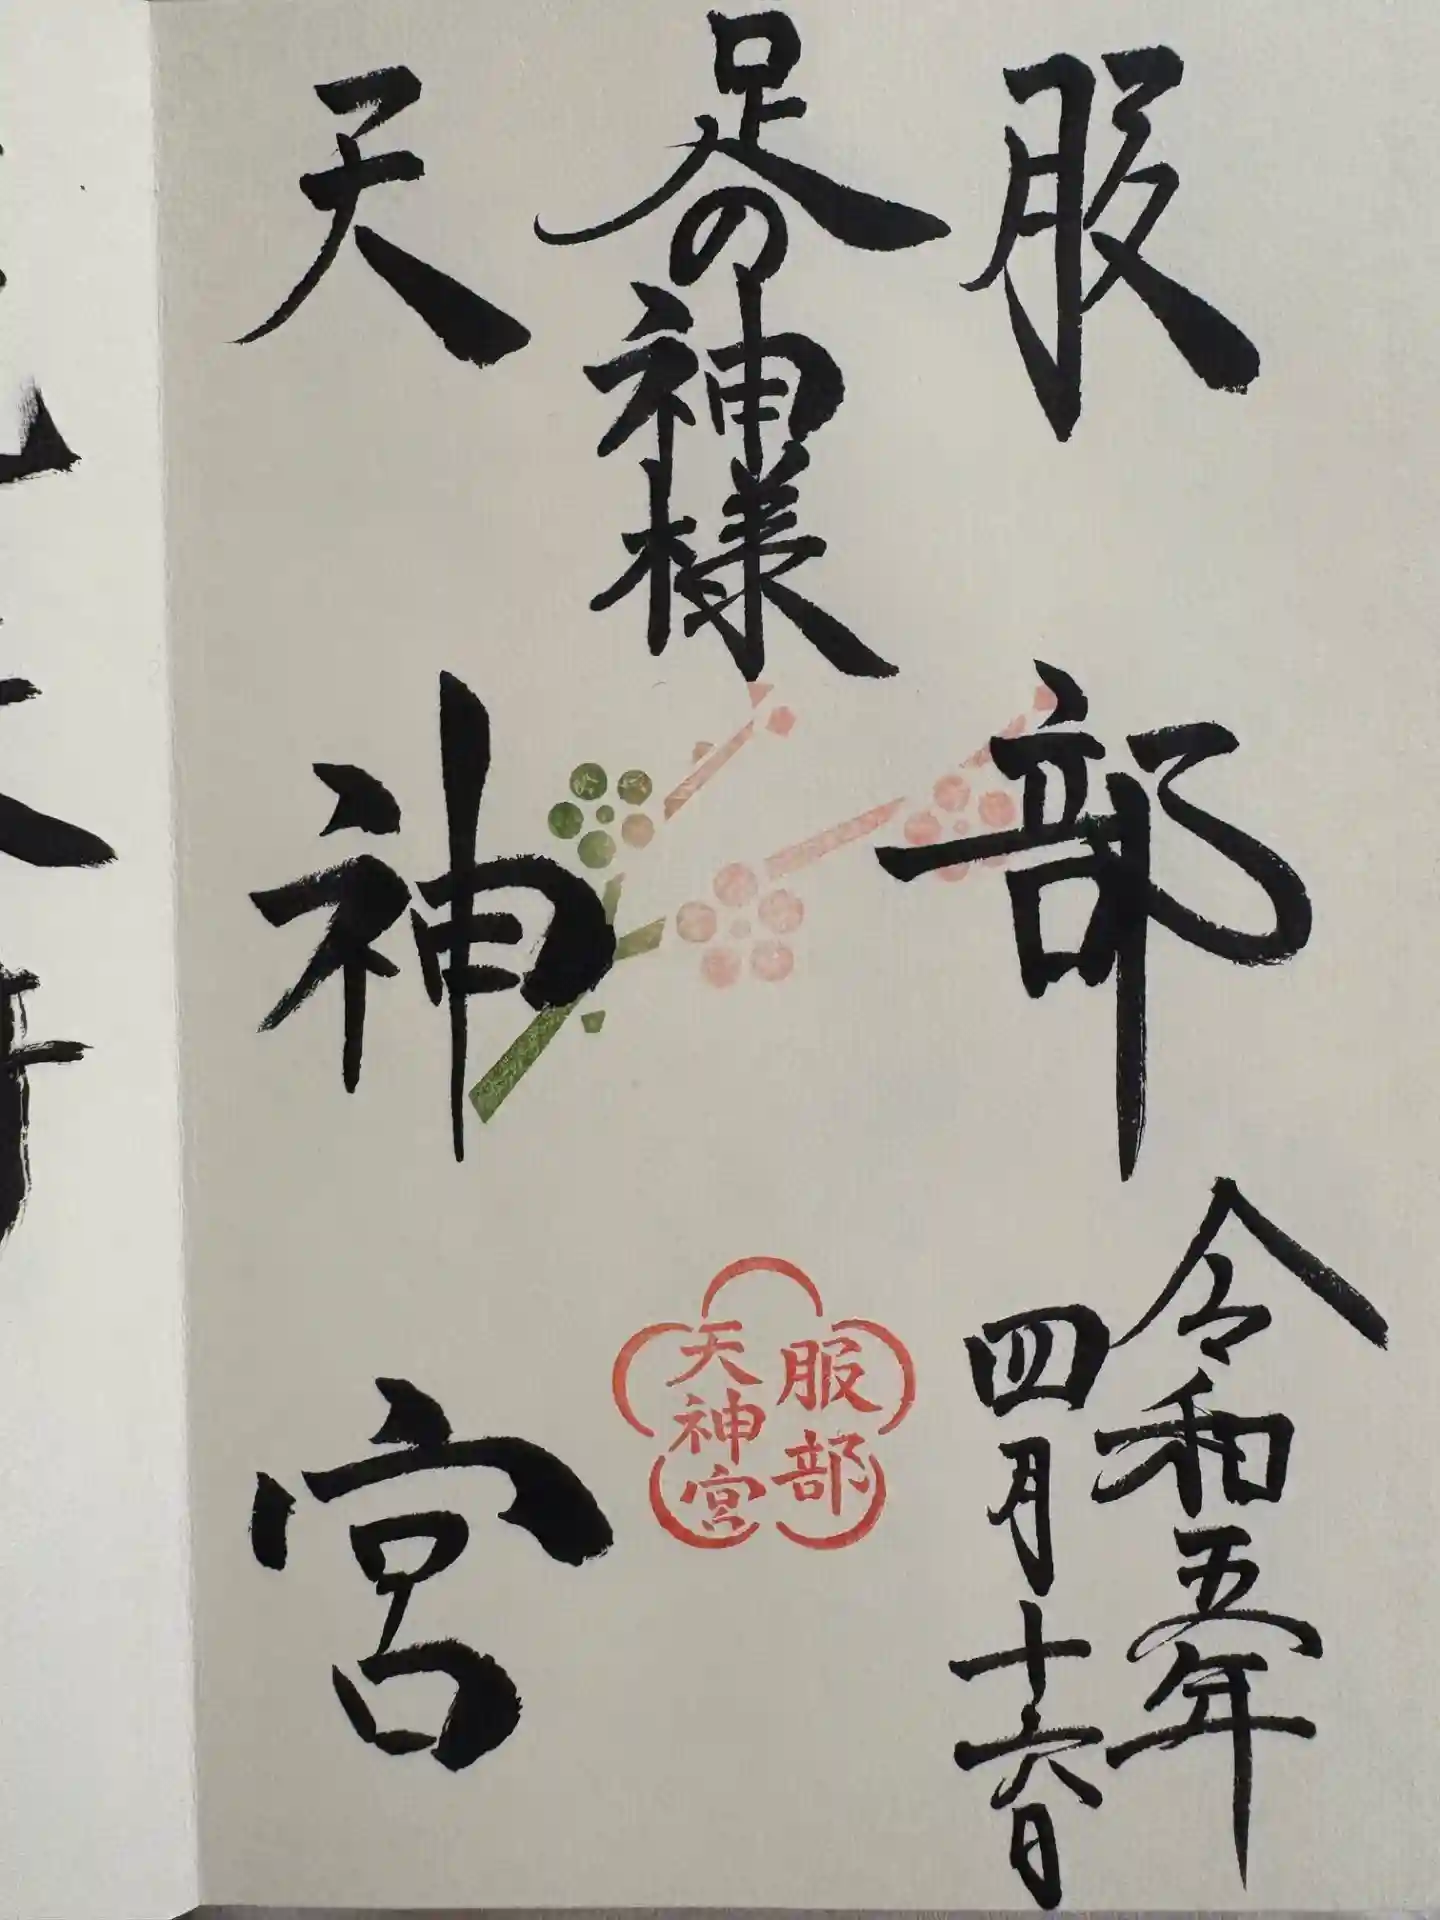 服部
令和五年
四月十六日
足の神様
服部
天神宮
天神宮